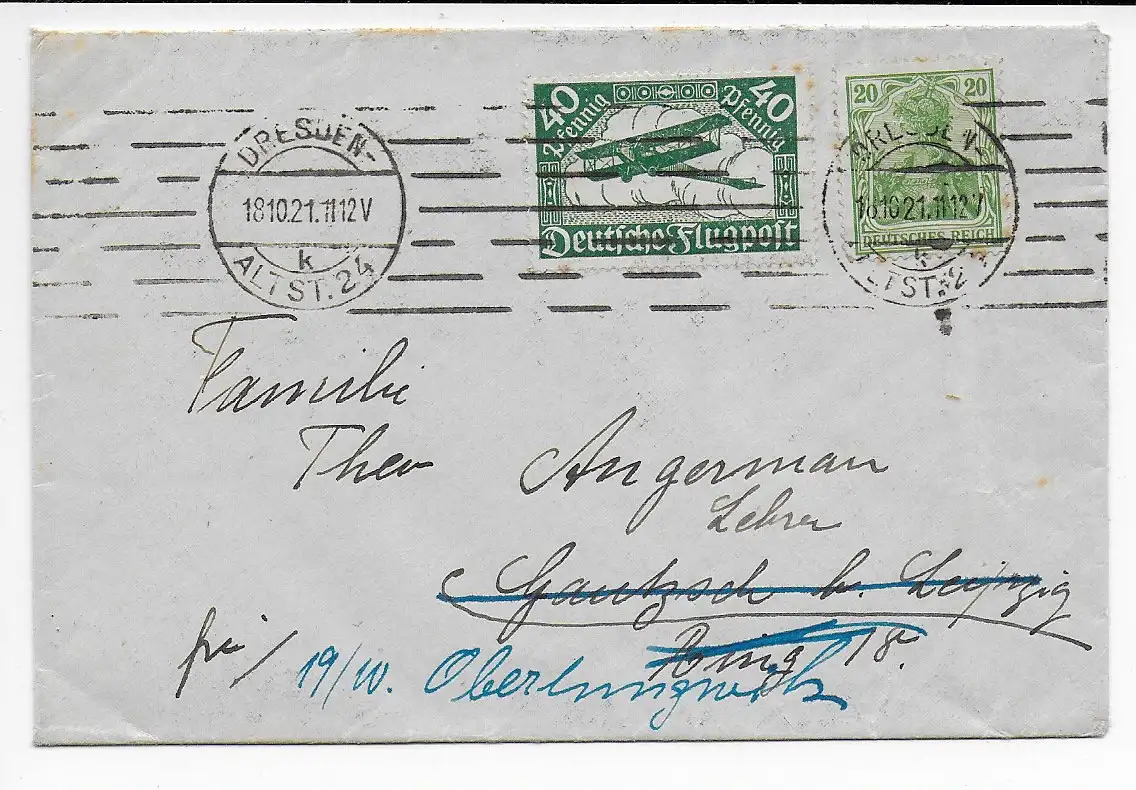 40 Pfennig 40 Pfennig
Deutsche Flugpost
20 20
DEUTSCHES REICH
DRESDEN-
18.10.21.11-12V
k
ALTST. 24
DRESDEN
18.10.21.11-12V
k
ALTST. 2
Familie
Theo Angerman
Lehrer
Gautzsch b. Leipzig
Ring 18a
frei/ 19/10.